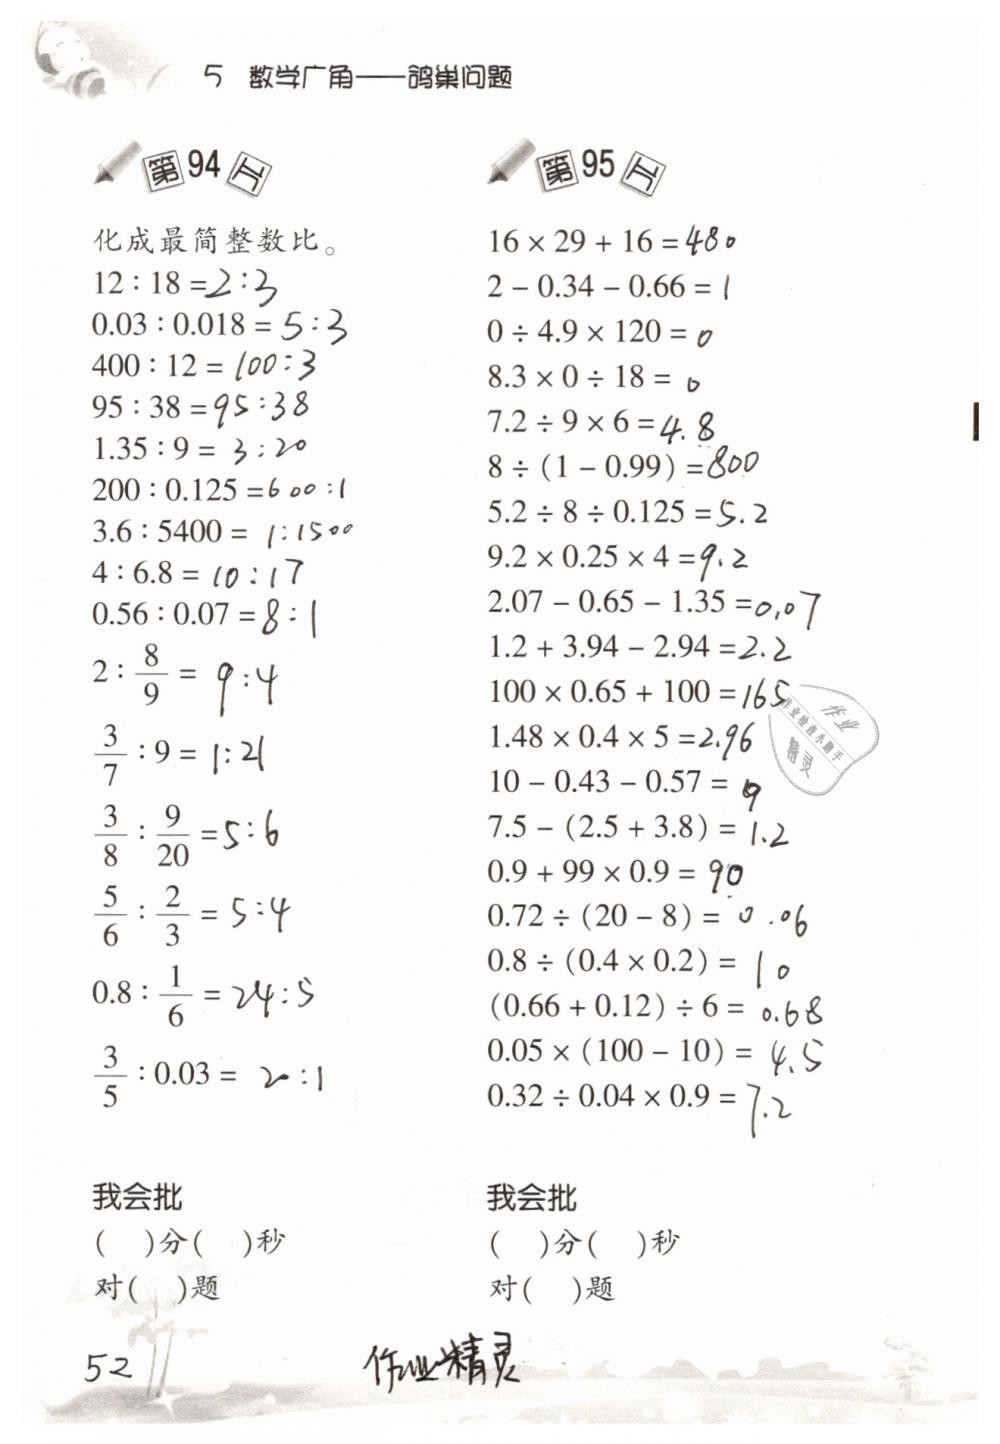 5 数学广角——鸽巢问题
第94工
化成最简整数比。
12∶18=2∶3
0.03∶0.018=5∶3
400∶12=100∶3
95∶38=95∶38
1.35∶9=3∶20
200∶0.125=600∶1
3.6∶5400=1∶1500
4∶6.8=10∶17
0.56∶0.07=8∶1
2∶8/9=9∶4
3/7∶9=1∶21
3/8∶9/20=5∶6
5/6∶2/3=5∶4
0.8∶1/6=24∶5
3/5∶0.03=20∶1
我会批
( )分( )秒
对( )题
第95工
16×29+16=480
2-0.34-0.66=1
0÷4.9×120=0
8.3×0÷18=0
7.2÷9×6=4.8
8÷(1-0.99)=800
5.2÷8÷0.125=5.2
9.2×0.25×4=9.2
2.07-0.65-1.35=0.07
1.2+3.94-2.94=2.2
100×0.65+100=165
1.48×0.4×5=2.96
10-0.43-0.57=9
7.5-(2.5+3.8)=1.2
0.9+99×0.9=90
0.72÷(20-8)=0.06
0.8÷(0.4×0.2)=10
(0.66+0.12)÷6=0.68
0.05×(100-10)=4.5
0.32÷0.04×0.9=7.2
我会批
( )分( )秒
对( )题
作业
作业检查小助手
精灵
52
作业精灵